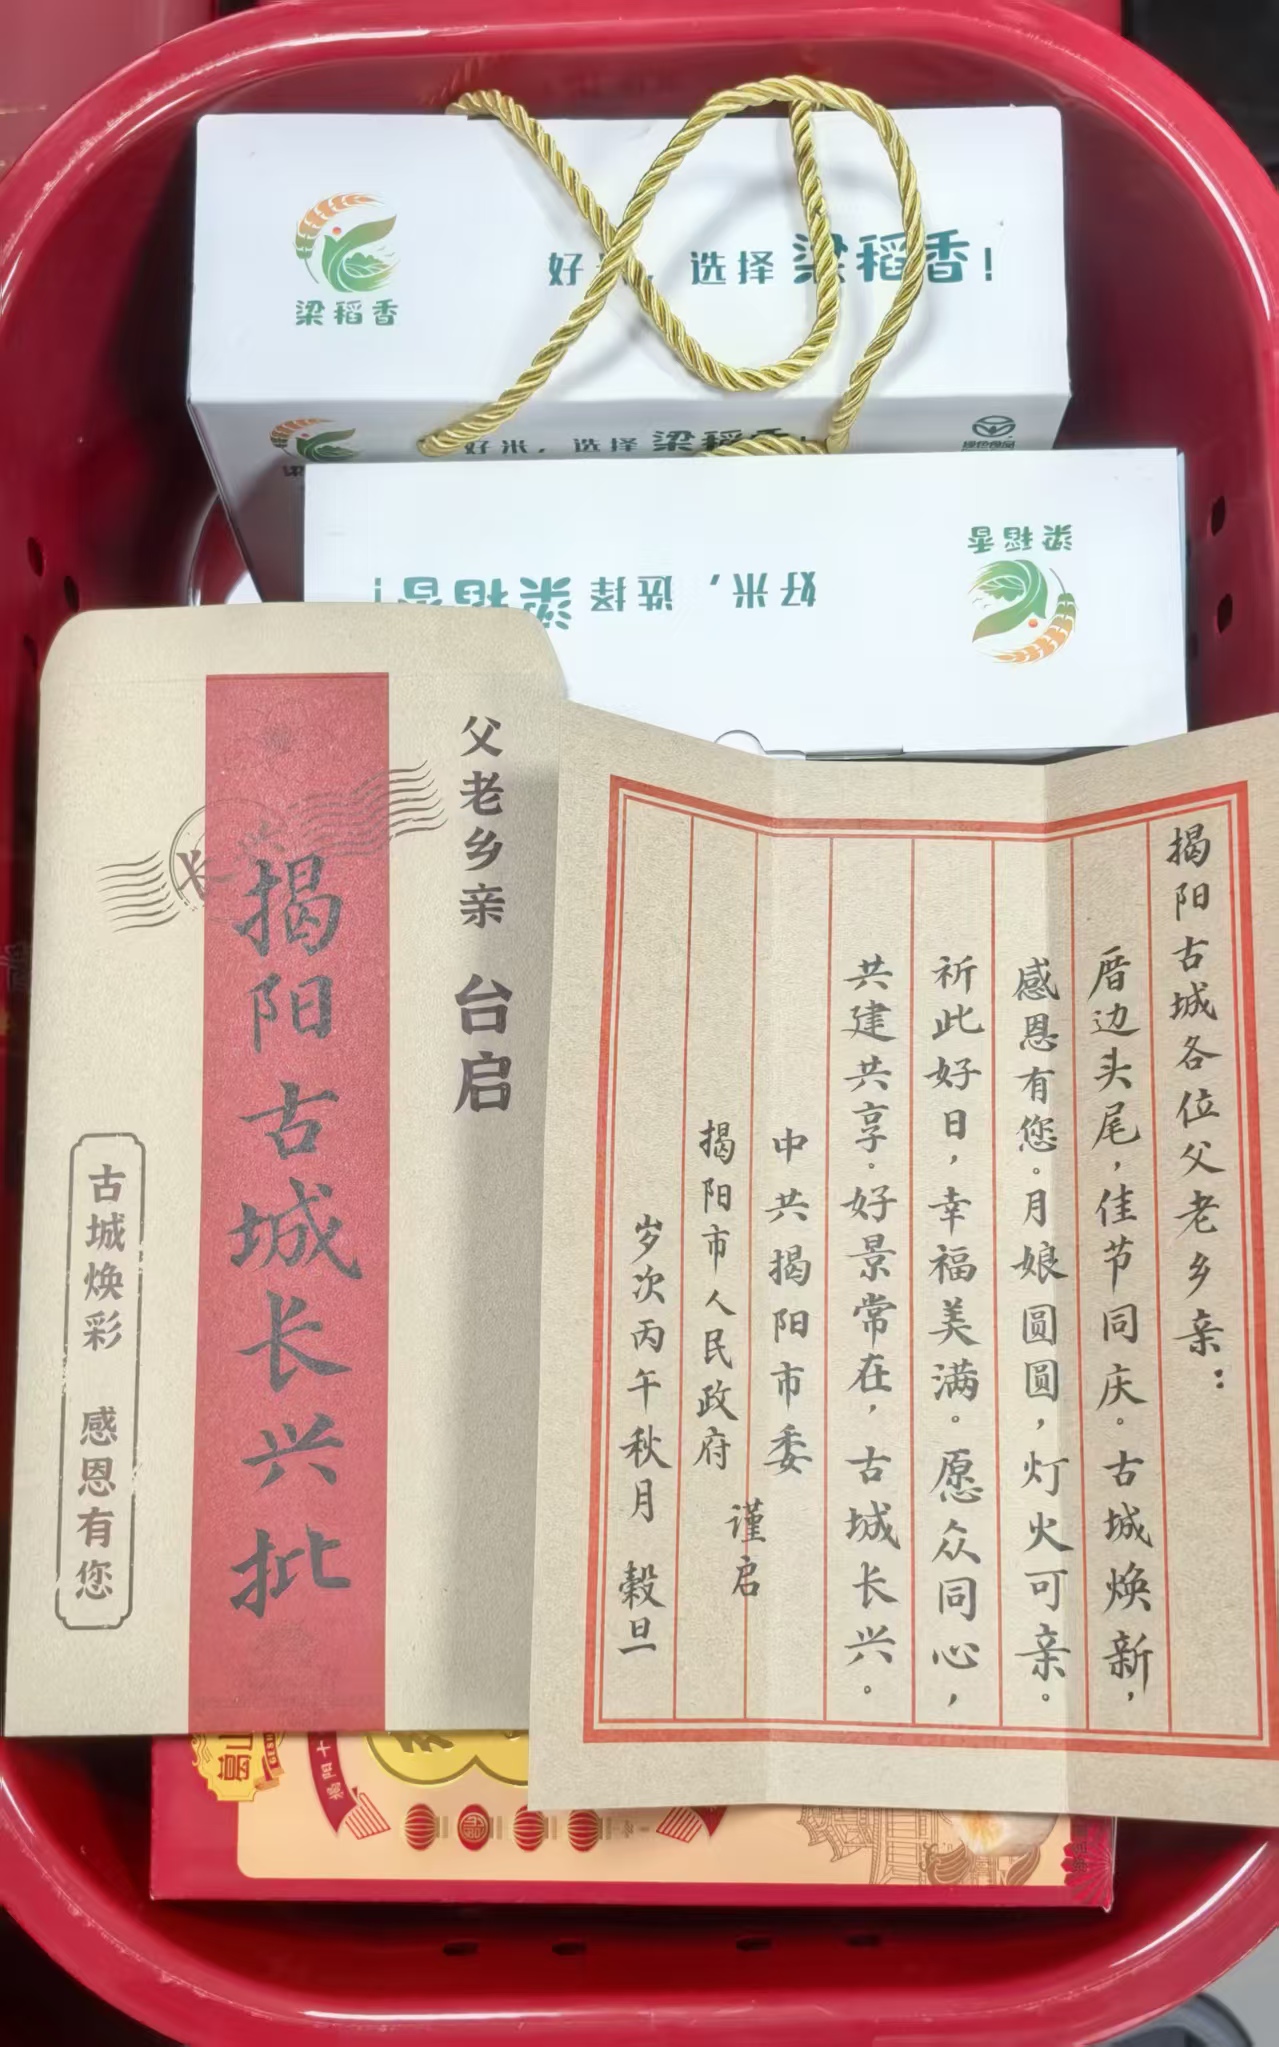 梁稻香
选择 梁稻香!
好米，选择 梁稻香!
绿色食品
梁稻香
好米，选择 梁稻香!
父老乡亲 台启
揭阳古城长兴批
古城焕彩 感恩有您
揭阳古城各位父老乡亲：
厝边头尾，佳节同庆。古城焕新，
感恩有您。月娘圆圆，灯火可亲。
祈此好日，幸福美满。愿众同心，
共建共享。好景常在，古城长兴。
中共揭阳市委
揭阳市人民政府
谨启
岁次丙午秋月 穀旦